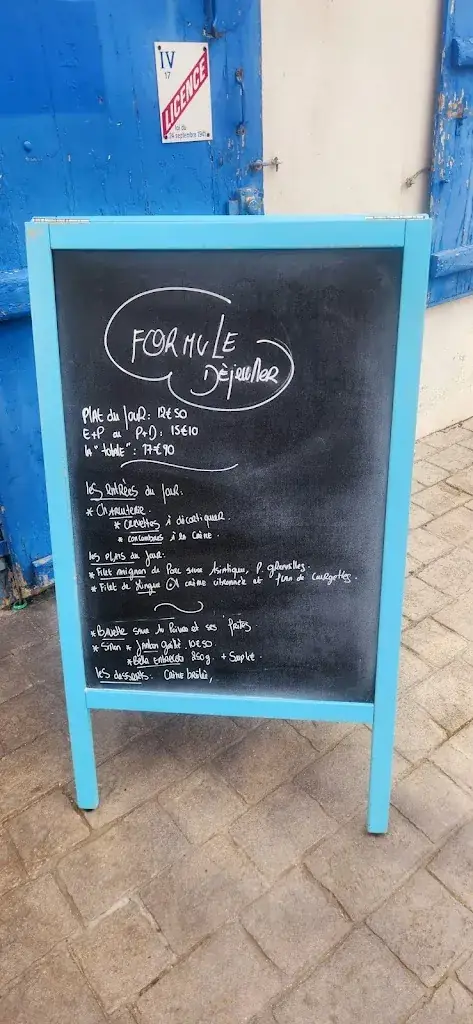 IV
17
LICENCE
loi du
24 septembre 1941
FORMULE
Déjeuner
Plat du Jour: 12€50
E+P ou P+D: 15€10
la "totale": 17€90
les entrées du Jour:
* Charcuterie.
* crevettes à décortiquer.
* concombres à la crème.
les plats du Jour:
* Filet mignon de Porc sauce Asiatique, P. grenailles.
* Filet de Lingue crème citronnée et flan de courgettes.
* Bavette sauce au Poivre et ses frites
* Sinon * Jambon grillé 10€50
* Belle Entrecôte 250g. + Supplé.
les desserts: Crème brûlée,